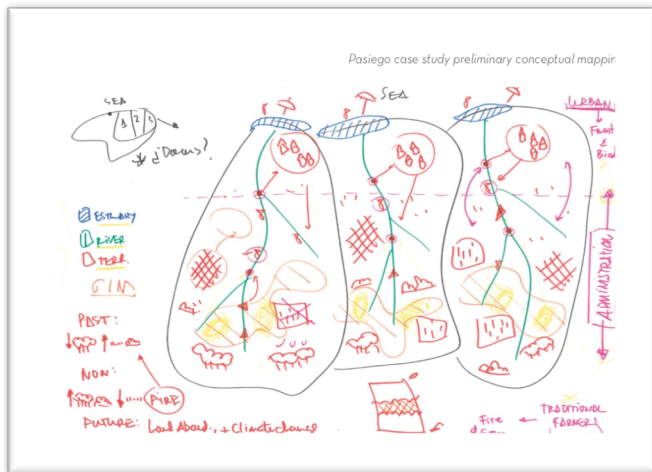 Pasiego case study preliminary conceptual mappin
SEA
1 2 3
SEA
URBAN
ESTUARY
RIVER
TERR.
ADMINISTRATION
PAST:
NOW:
FIRE
FUTURE: Land Aband., + Climate change
TRADITIONAL
FARMER
Fire